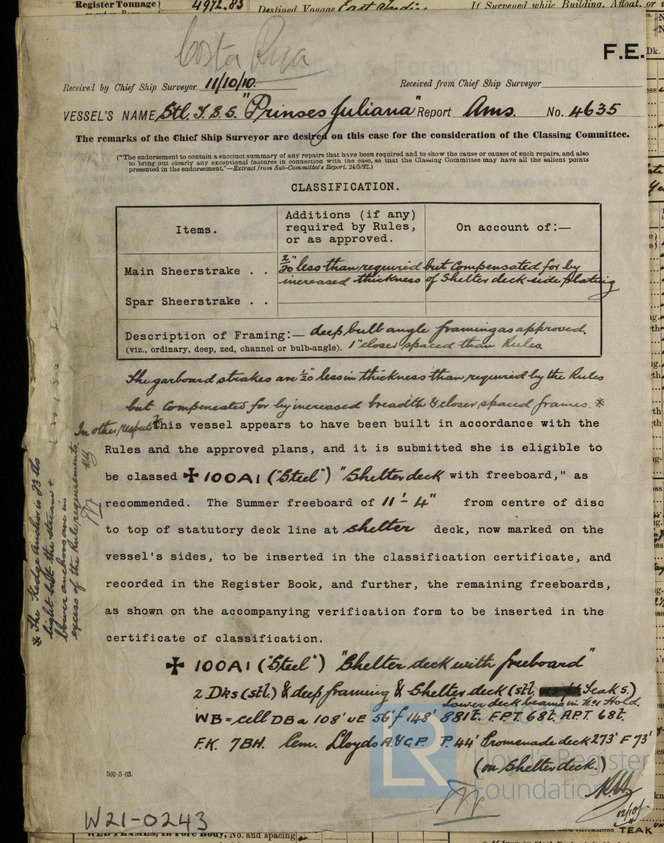 Register Tonnage 4972.83 Destined Voyage East Indies If Surveyed while Building, Afloat, or
Costa Rica
F.E.
Dk.
Received by Chief Ship Surveyor 11/10/10. Received from Chief Ship Surveyor
VESSEL'S NAME, Stl. T.S.S. "Prinses Juliana" Report Ams. No. 4635
The remarks of the Chief Ship Surveyor are desired on this case for the consideration of the Classing Committee.
("The endorsement to contain a succinct summary of any repairs that have been required and to show the cause or causes of such repairs, and also
to bring out clearly any exceptional features in connection with the case, so that the Classing Committee may have all the salient points
presented in the endorsement."—Extract from Sub-Committee's Report. 24/5/92.)
CLASSIFICATION.
Items.
Additions (if any)
required by Rules,
or as approved.
On account of:—
Main Sheerstrake . . 2/20" less than required but compensated for by
increased thickness of Shelter deck side plating
Spar Sheerstrake . .
Description of Framing:— deep bulb angle framing as approved.
(viz., ordinary, deep, zed, channel or bulb-angle). 1" closer spaced than Rules.
The garboard strakes are 1/20 less in thickness than required by the Rules
but compensated for by increased breadth & closer spaced frames. *
In other respects this vessel appears to have been built in accordance with the
Rules and the approved plans, and it is submitted she is eligible to
be classed ✠ 100A1 ("Steel") "Shelter deck with freeboard," as
recommended. The Summer freeboard of 11'-4" from centre of disc
to top of statutory deck line at shelter deck, now marked on the
vessel's sides, to be inserted in the classification certificate, and
recorded in the Register Book, and further, the remaining freeboards,
as shown on the accompanying verification form to be inserted in the
certificate of classification.
* The Kedge anchor is 93 lbs
light but the stream &
bower anchors are in
excess of the Rule requirements
✠ 100A1 ("Steel") "Shelter deck with freeboard"
2 Dks (stl) & deep framing & Shelter deck (stl. Teak s.)
Lower deck beams in No 1 Hold.
WB = cell DB a 108' uE 56' f 148' 881t. FPT 68t. APT 68t.
F.K. 7BH. Cem. Lloyds A & CP. P. 44' Promenade deck 273' F 73'
(on Shelter deck.)
12/10/10
500-5-03.
LR
Lloyd's Register
Foundation
W21-0243
TEAK
WEB FRAMES, in Fore Body, No. and spacing